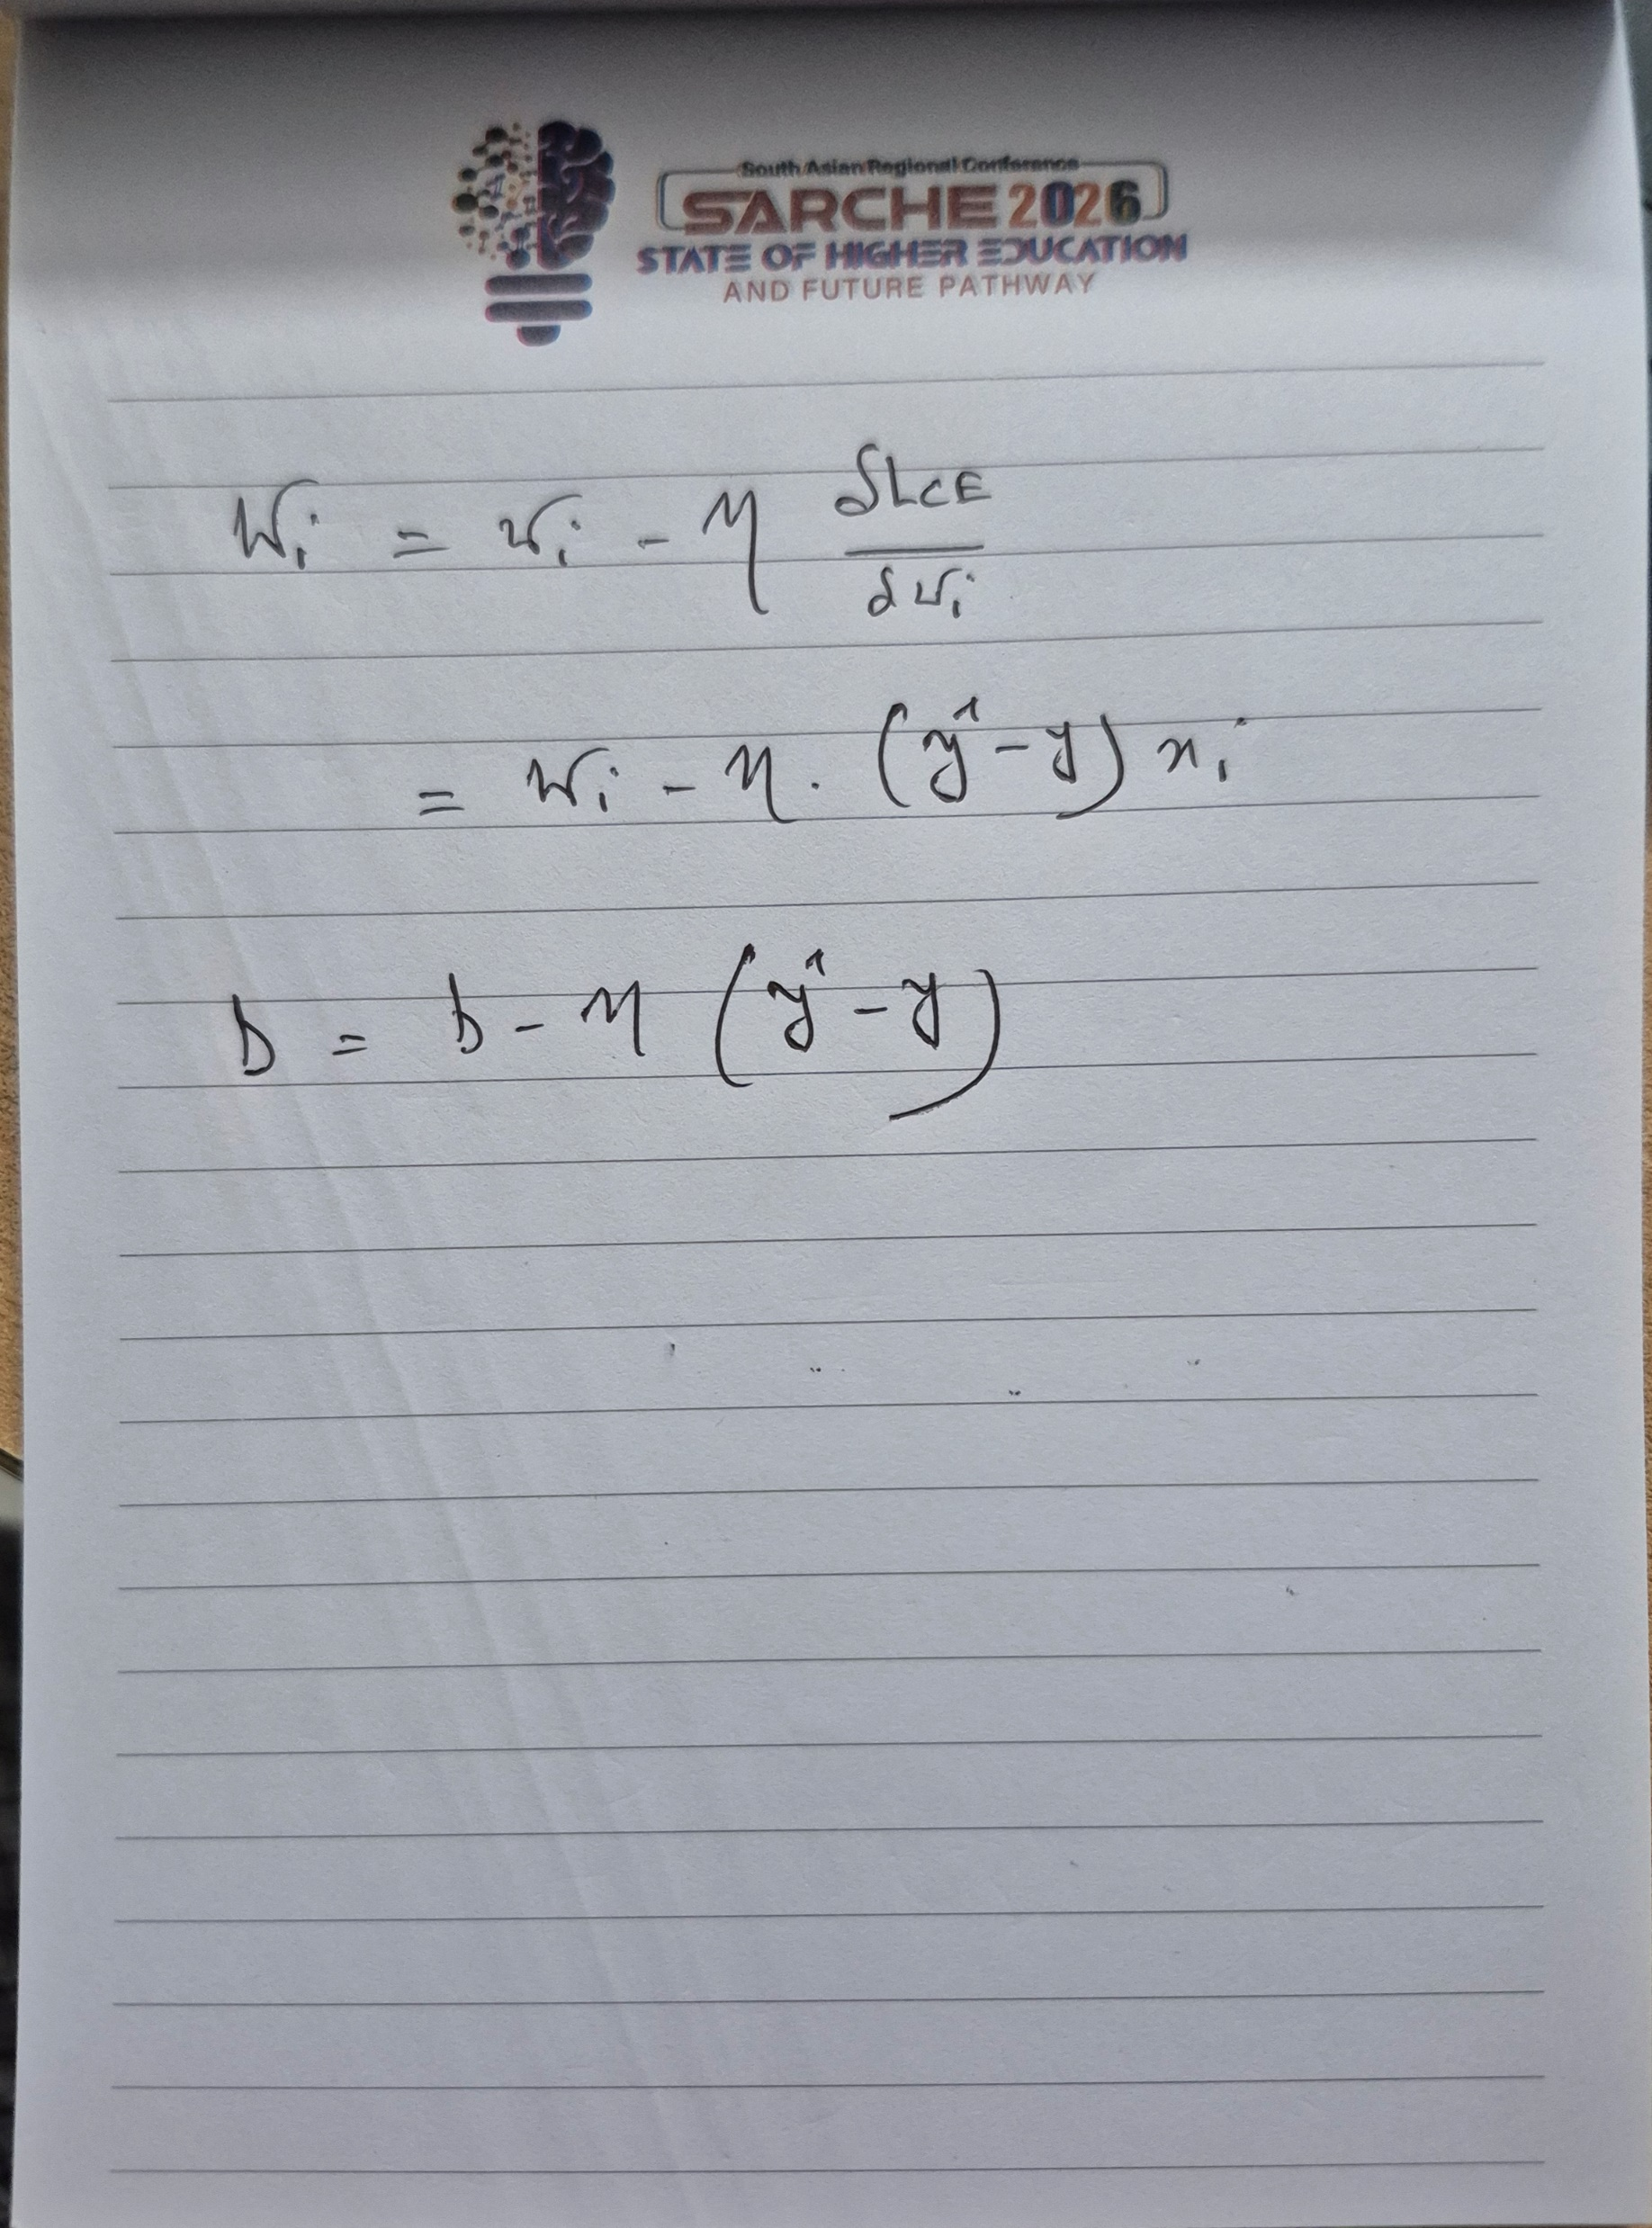 South Asian Regional Conference
SARCHE 2026
STATE OF HIGHER EDUCATION
AND FUTURE PATHWAY
wᵢ = wᵢ - η δLCE / δwᵢ
= wᵢ - η . (ŷ - y) xᵢ
b = b - η (ŷ - y)